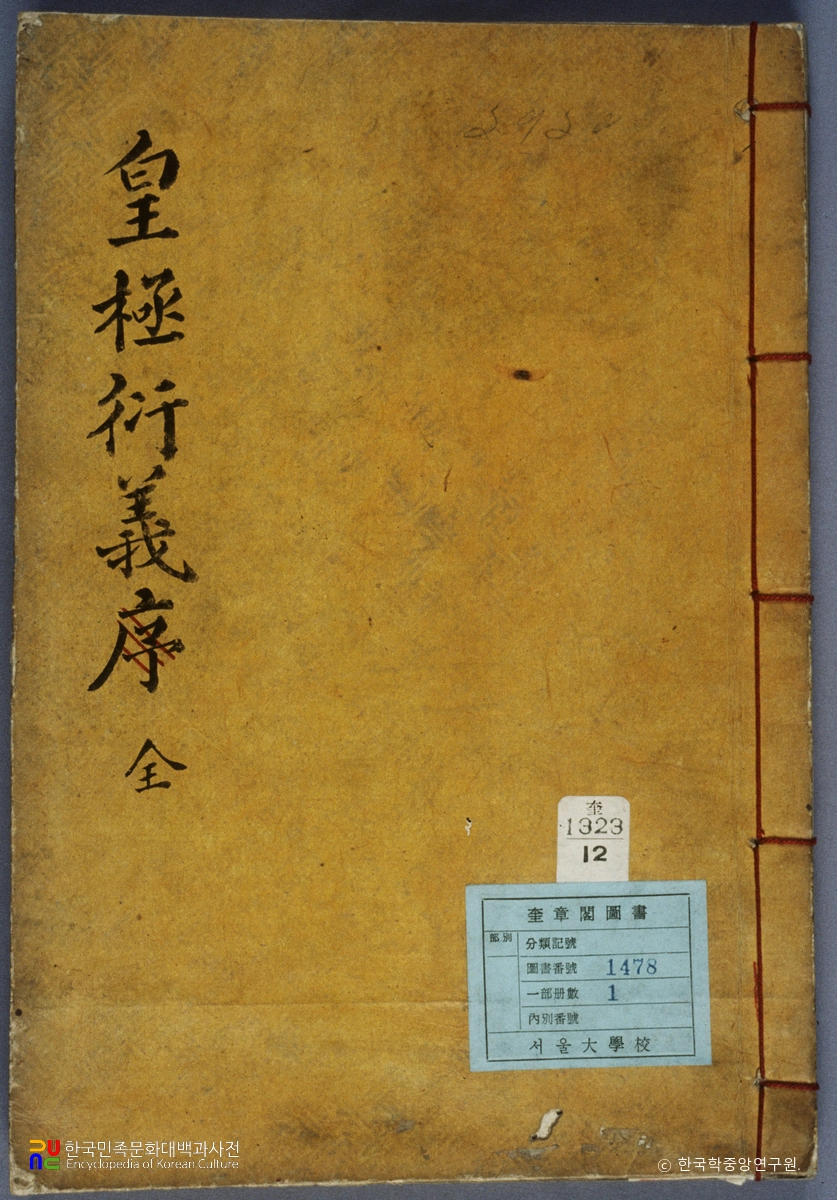 皇極衍義序 全
奎
1323
12
奎章閣圖書
部別
分類記號
圖書番號 1478
一部册數 1
內別番號
서울大學校
한국민족문화대백과사전
Encyclopedia of Korean Culture
© 한국학중앙연구원.